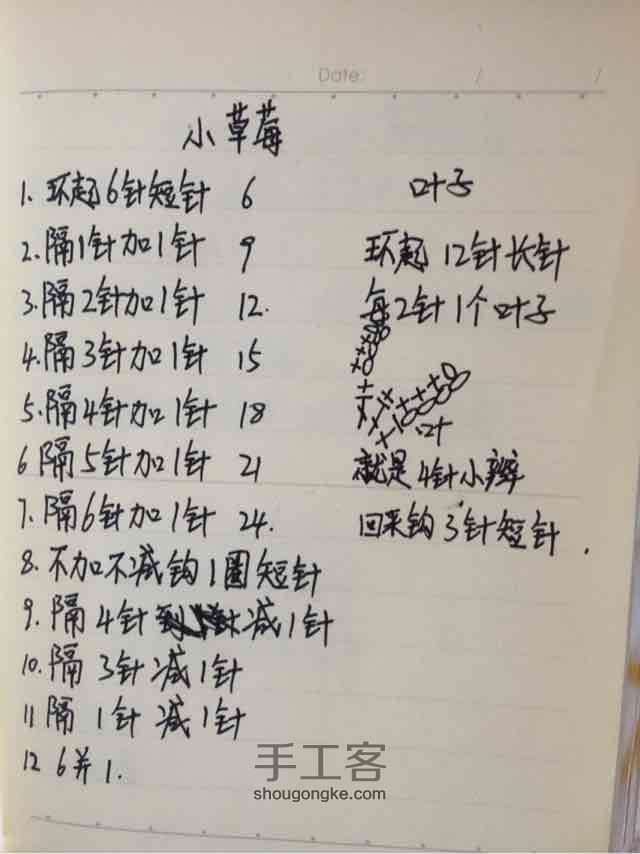 Date: / /
小草莓
1. 环起6针短针 6
2. 隔1针加1针 9
3. 隔2针加1针 12.
4. 隔3针加1针 15
5. 隔4针加1针 18
6 隔5针加1针 21
7. 隔6针加1针 24.
8. 不加不减钩1圈短针
9. 隔4针减1针
10. 隔3针减1针
11 隔1针减1针
12 6并1.
叶子
环起12针长针
每2针1个叶子
叶
就是4针小辫
回来钩3针短针.
手工客
shougongke.com